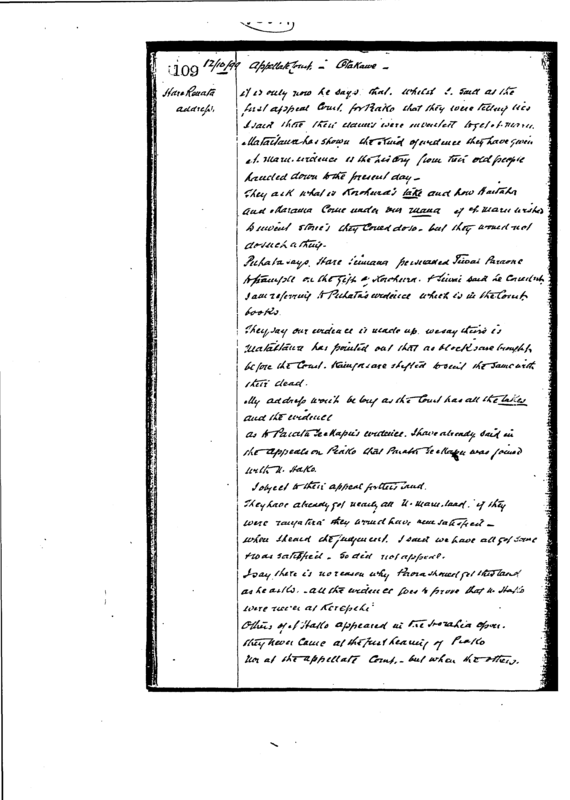 109 12/10/99 Appellate Court - Otakawe -
Hare Renata address.
it is only now he says that. Whilst I said as the
first appeal Court, for Piako that they were telling lies
I said that their claims were invented to get N. Maru.
Mataitawa has shown the kind of evidence they have given
N. Maru. evidence is the history from their old people
handed down to the present day -
They ask what is Korohura's take and how
and Marama Come under our mana if N. Maru wishes
to invent stories they could do so - but they would not
do such a thing.
Puhata says. Hare persuaded Paraone
to trample on the gift of Korohura. said he
I am referring to Puhata's evidence which is in the Court
books.
They say our evidence is made up. we say theirs is
Mataitawa has pointed out that as blocks are brought
before the Court. Kaingas are shifted to suit the same with
their dead.
My address won't be long as the Court has all the takes
and the evidence
as to Parata Te Mapu's evidence. I have already said in
the appeals on Piako that Parata Te Mapu was joined
with N. Hako.
I object to their appeal for this land.
They have already got nearly all N. Maru land. if they
were rangatira they would have been satisfied -
when I heard the judgment. I said we have all got some
& was satisfied - So did not appeal.
I say there is no reason why should get this land
as he asks. - all the evidence goes to prove that N. Hako
were never at Kerepehi
Others of N Hako appeared in the Horahia
they never came at the first hearing of Piako
nor at the appellate Court. - but when the others.